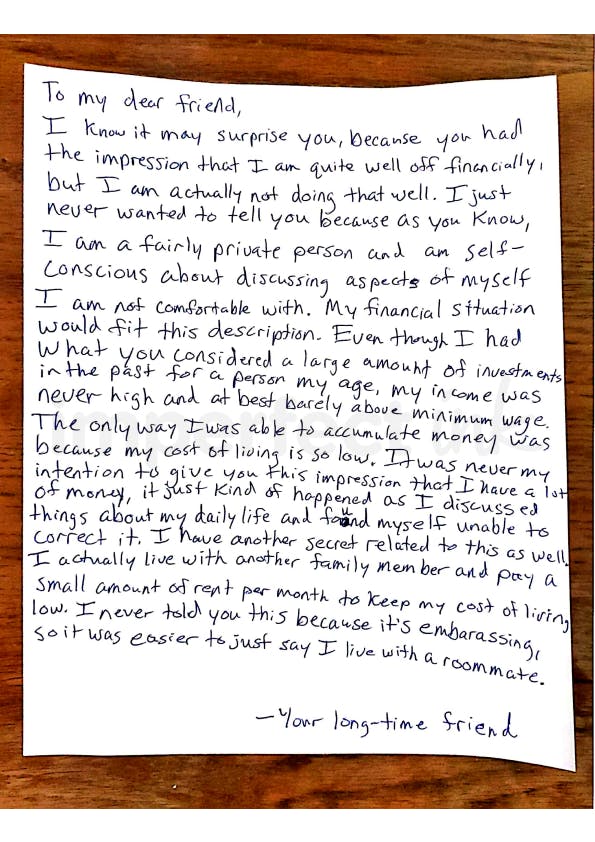 To my dear friend,
I know it may surprise you, because you had
the impression that I am quite well off financially,
but I am actually not doing that well. I just
never wanted to tell you because as you know,
I am a fairly private person and am self-
conscious about discussing aspects of myself
I am not comfortable with. My financial situation
would fit this description. Even though I had
what you considered a large amount of investments
in the past for a person my age, my income was
never high and at best barely above minimum wage.
The only way I was able to accumulate money was
because my cost of living is so low. It was never my
intention to give you this impression that I have a lot
of money, it just kind of happened as I discussed
things about my daily life and found myself unable to
correct it. I have another secret related to this as well.
I actually live with another family member and pay a
small amount of rent per month to keep my cost of living
low. I never told you this because it's embarassing,
so it was easier to just say I live with a roommate.
-Your long-time friend